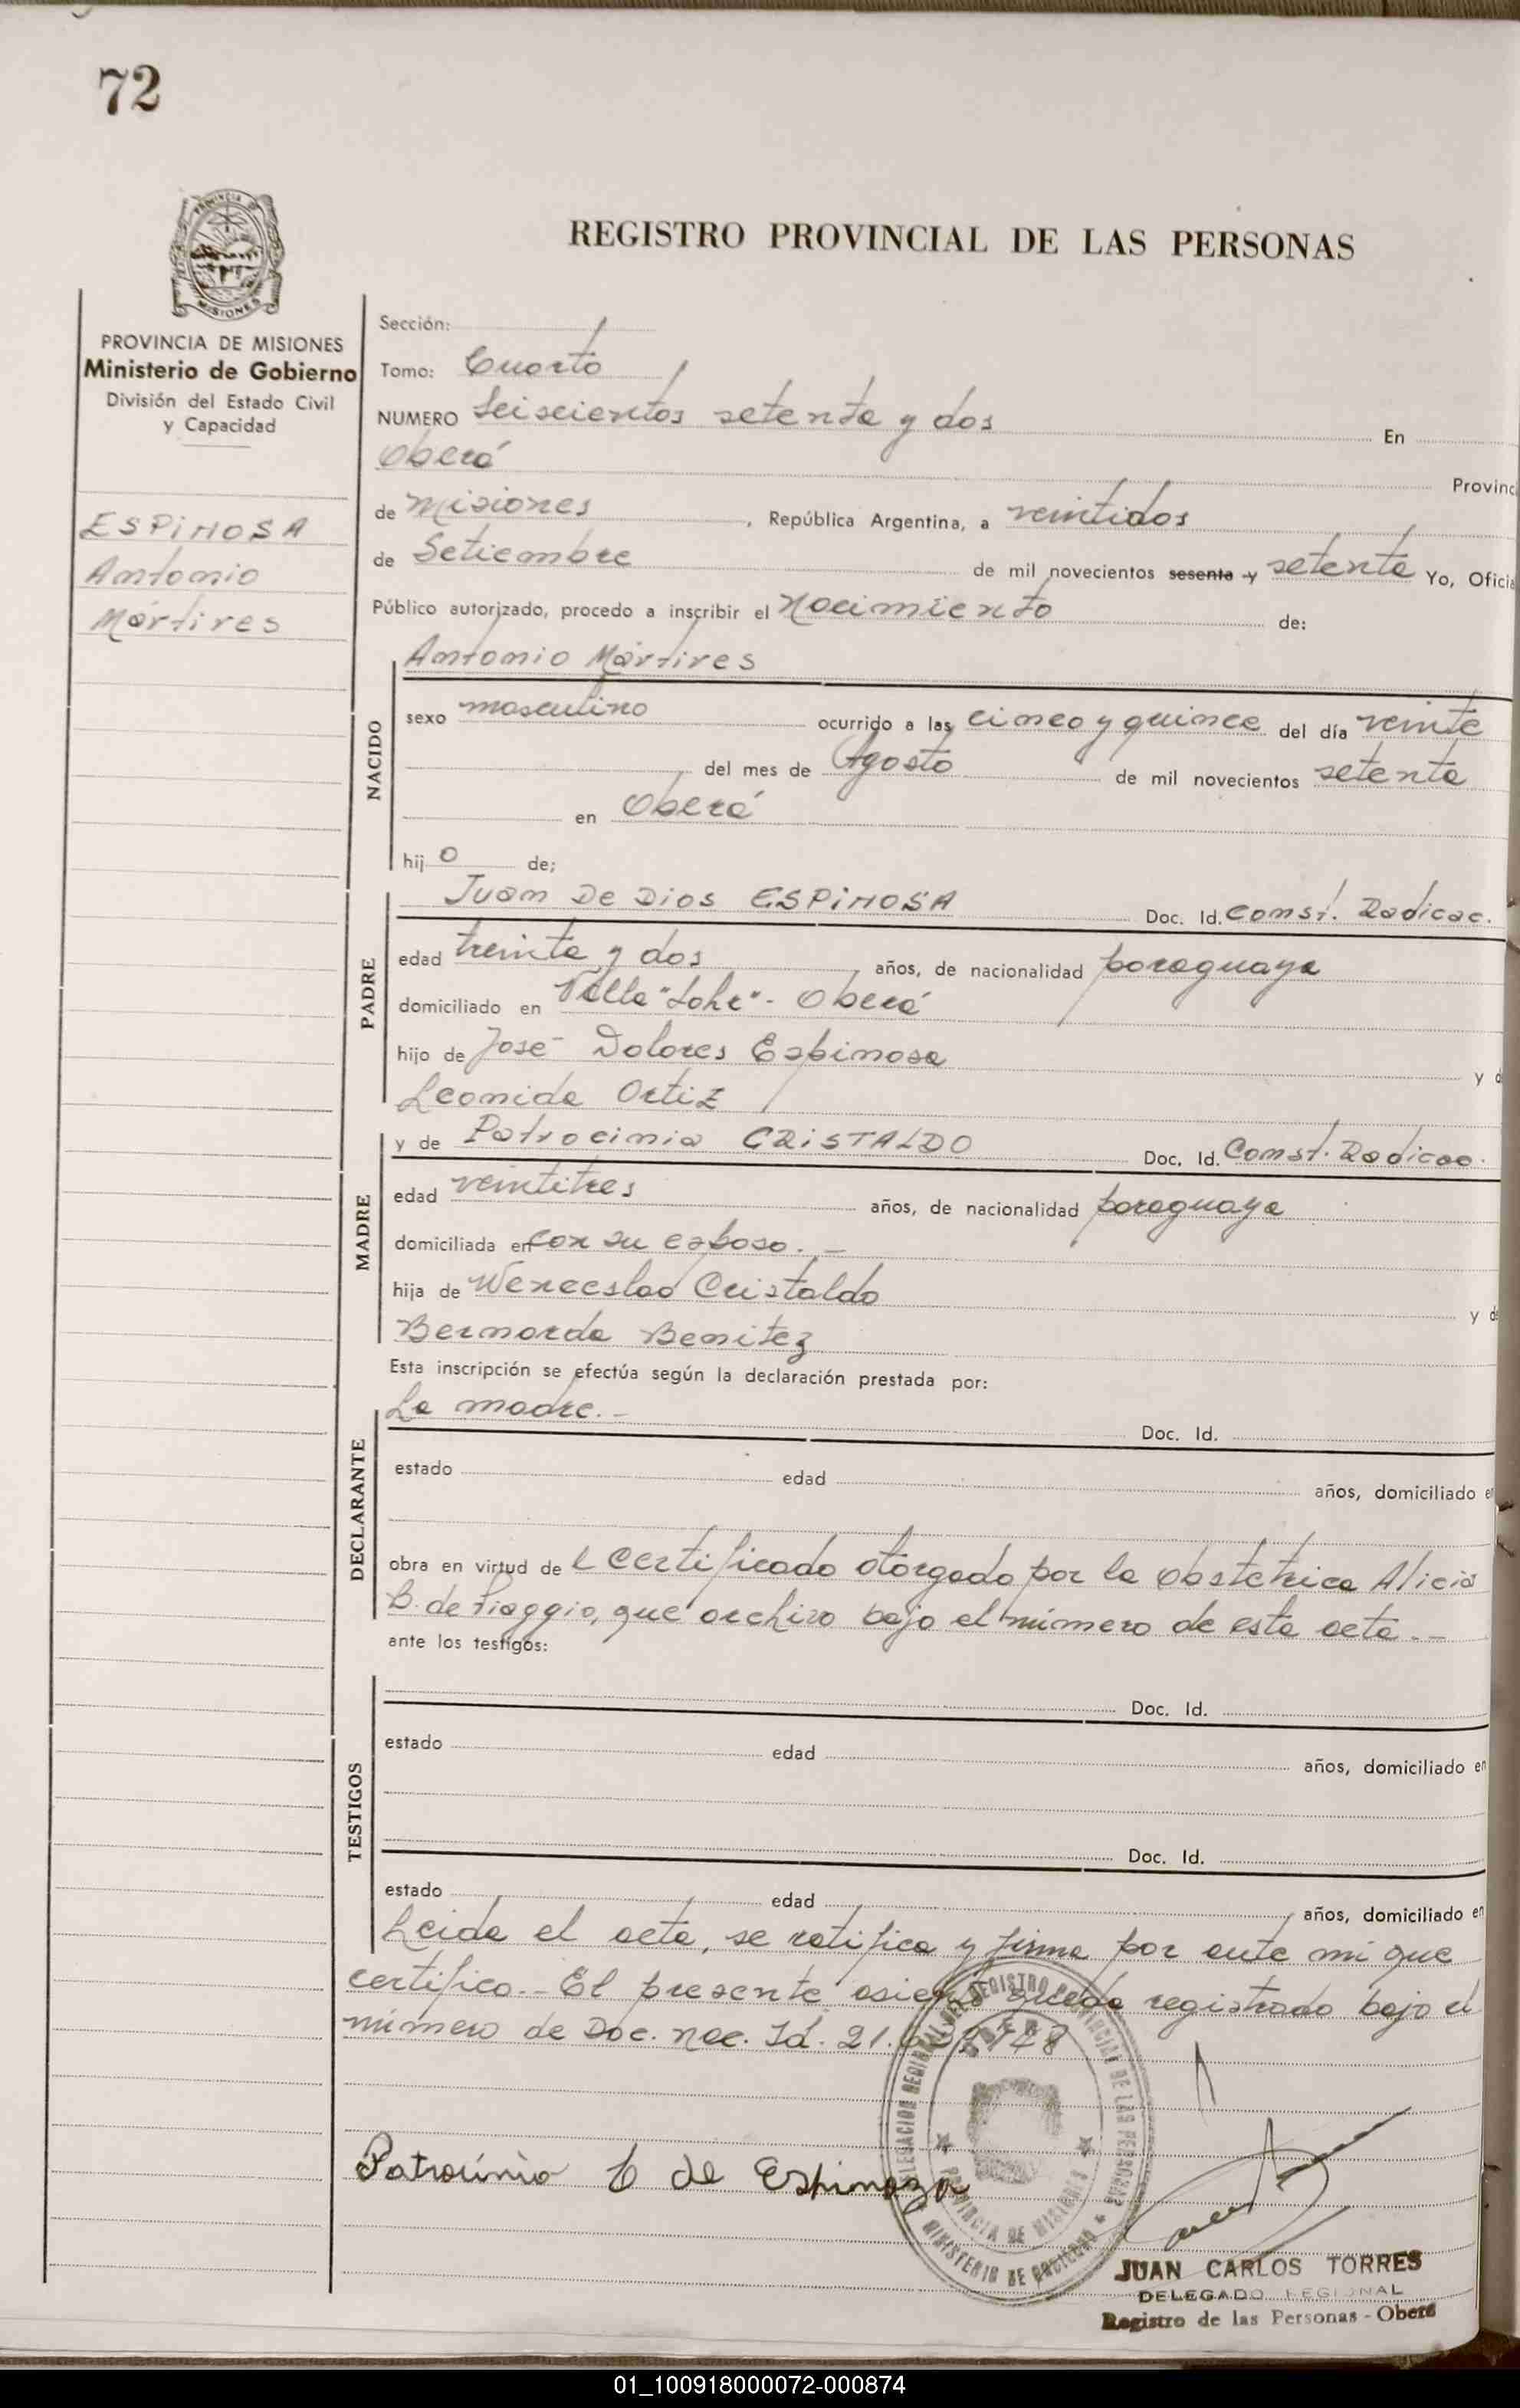 72
PROVINCIA DE MISIONES
Ministerio de Gobierno
División del Estado Civil
y Capacidad
ESPINOSA
Antonio
Mártires
REGISTRO PROVINCIAL DE LAS PERSONAS
Sección:
Tomo: Cuarto
NUMERO Seiscientos setenta y dos En
Oberá Provinc
de Misiones, República Argentina, a veintidos
de Setiembre de mil novecientos sesenta y setenta Yo, Oficia
Público autorizado, procedo a inscribir el Nacimiento de:
Antonio Mártires
NACIDO
sexo masculino ocurrido a las cinco y quince del día veinte
del mes de Agosto de mil novecientos setenta
en Oberá
hij o de;
PADRE
Juan De Dios ESPINOSA Doc. Id. Const. Radicac.
edad treinta y dos años, de nacionalidad paraguaya
domiciliado en Villa "Lohr" - Oberá
hijo de José Dolores Espinosa y d
Leonida Ortiz
MADRE
y de Patrocinia CRISTALDO Doc. Id. Const. Radicac.
edad veintitres años, de nacionalidad paraguaya
domiciliada en con su esposo. -
hija de Wenceslao Cristaldo y de
Bernarda Benitez
Esta inscripción se efectúa según la declaración prestada por:
DECLARANTE
La madre. - Doc. Id.
estado edad años, domiciliado en
obra en virtud de l certificado otorgado por la obstetrica Alicia
B. de Piaggio, que archivo bajo el número de esta acta. -
ante los testigos:
TESTIGOS
Doc. Id.
estado edad años, domiciliado en
Doc. Id.
estado edad años, domiciliado en
Leida el acta, se ratifica y firma por ante mi que
certifico. - El presente asiento queda registrado bajo el
número de Doc. nac. Id. 21.
DELEGACION REGIONAL DEL REGISTRO PROVINCIAL DE LAS PERSONAS
OBERA
PROVINCIA DE MISIONES
MINISTERIO DE GOBIERNO
Patrocinia C de Espinoza
JUAN CARLOS TORRES
DELEGADO REGIONAL
Registro de las Personas - Oberá
01_100918000072-000874